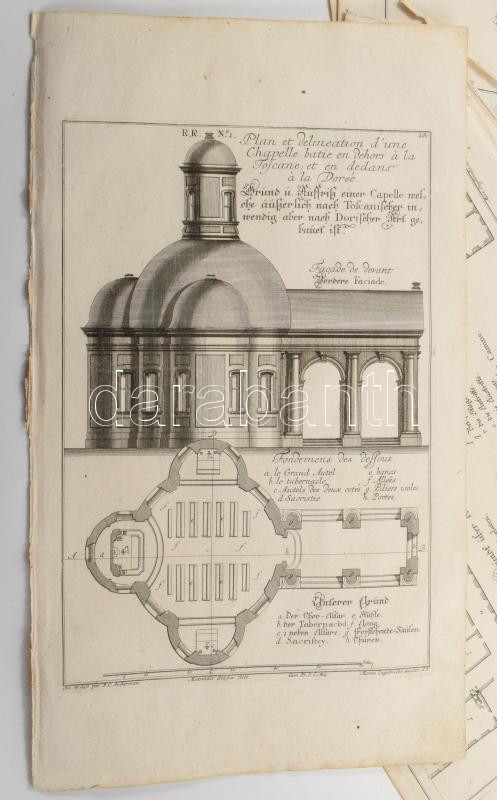 R.R. Nº1.
Plan et delineation d'une
Chapelle batie en dehors à la
Toscane, et en dedans
à la Doree
Grund u. Auffriß einer Capelle wel,
che äußerlich nach Toscanischer in,
wendig aber nach Dorischer Art ge,
bauet ist.
Façade de devant
Vordere Faciade.
darabanth
Fondemens des dessous.
a. le Grand Autel e. bancs
b. le tabernacle f. Allées
c. Autels des deux cotés g. Piliers isolés
d. Sacristie h. Portes.
Unterer Grund
a. Der Chor-Altar e. Stühle.
b. der Tabernackel f. Gang.
c. 2 neben Altäre g. freystehende Säulen.
d. Sacristey. h. Thüren.
A a b c d e f g h B
Cum Pr. S. C. Maj.